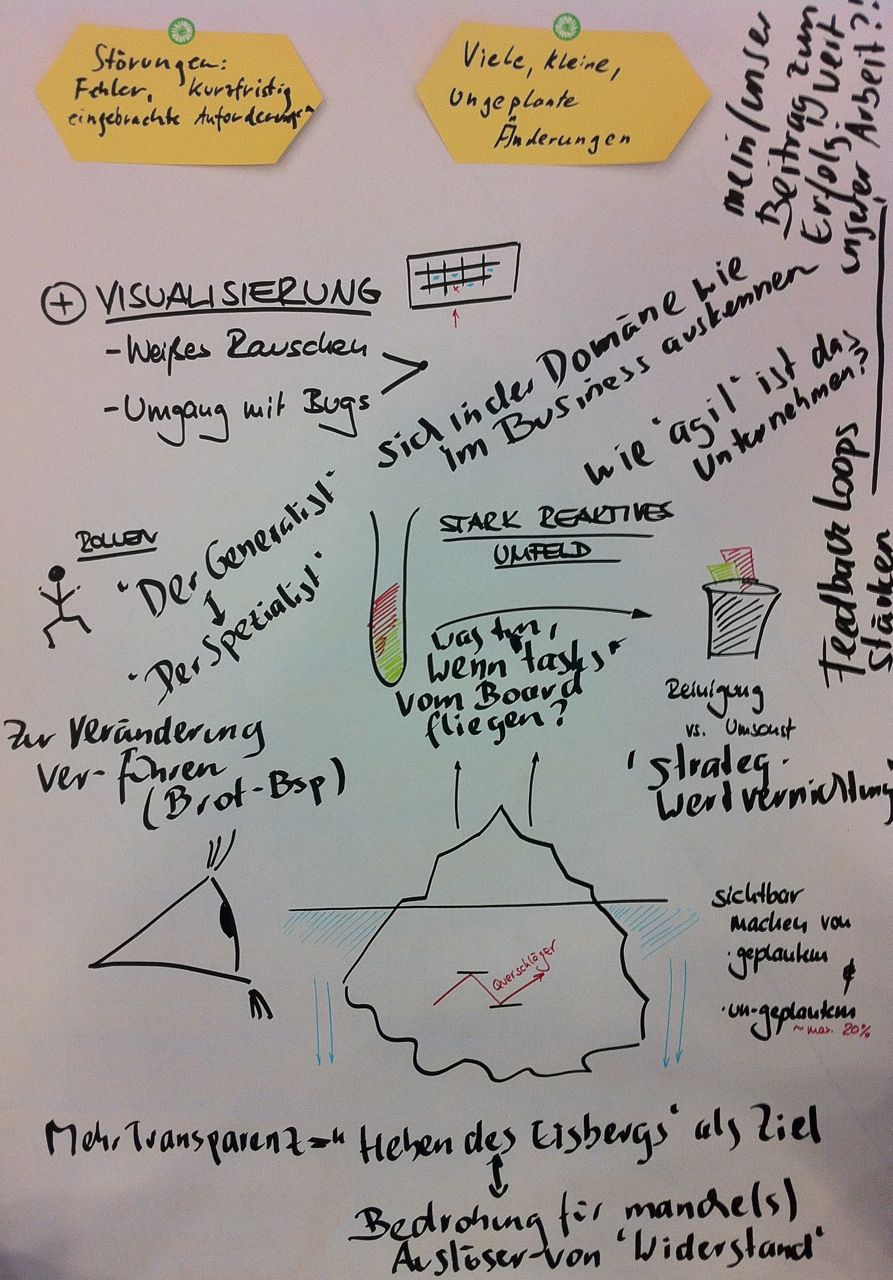 Störungen:
Fehler, kurzfristig
eingebrachte Anforderungen
Viele, kleine,
Ungeplante
Änderungen
mein/unser
Beitrag zum
Erfolg mit
unserer Arbeit?!
+ VISUALISIERUNG
- Weißes Rauschen
- Umgang mit Bugs
sich in der Domäne wie
im Business auskennen
wie "agil" ist das
Unternehmen?
Feedback loops
stärken
ROLLEN
"Der Generalist"
"Der Spezialist"
STARK REAKTIVES
UMFELD
was tun,
wenn "tasks"
vom Board
fliegen?
Reinigung
vs. Umsonst
"strateg.
Wertvernichtung
Zur Veränderung
ver-führen
(Brot-Bsp)
sichtbar
machen von
· geplantem
&
· un-geplantem
~ max. 20%
Querschläger
Mehr Transparenz = "Heben des Eisbergs" als Ziel
Bedrohung für manche(s)
Auslöser von "Widerstand"